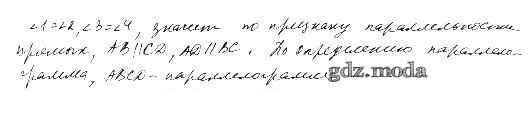 ∠1=∠2, ∠3=∠4, значит по признаку параллельности
прямых, AB∥CD, AD∥BC. По определению параллело-
грамма, ABCD - параллелограмм
gdz.moda